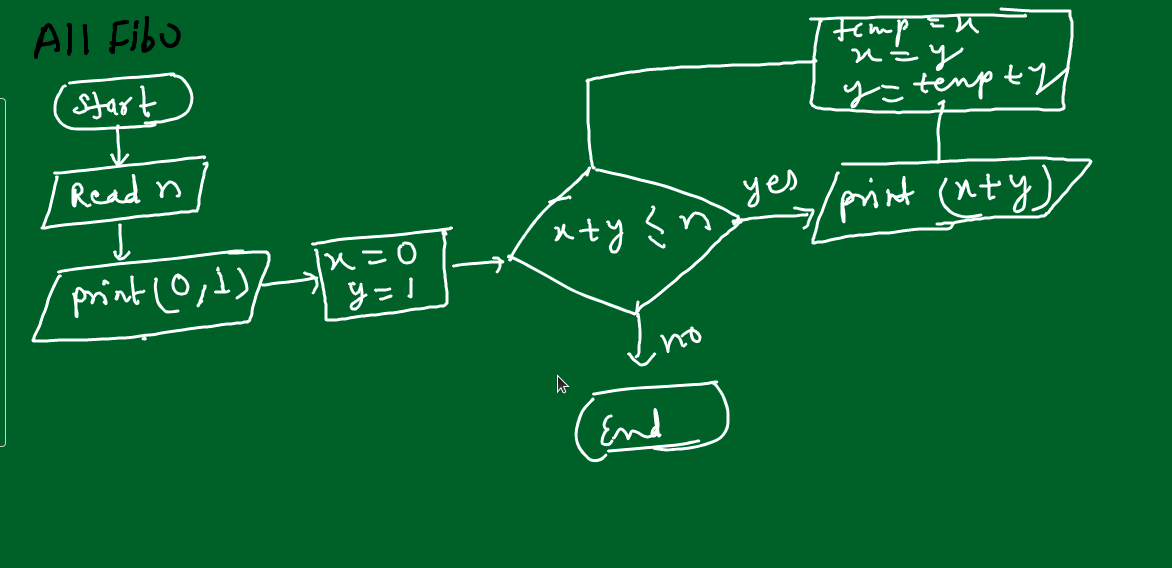 All Fibo
Start
Read n
print (0,1)
x = 0
y = 1
x+y ≤ n
yes
print (x+y)
temp = x
x = y
y = temp + y
no
End